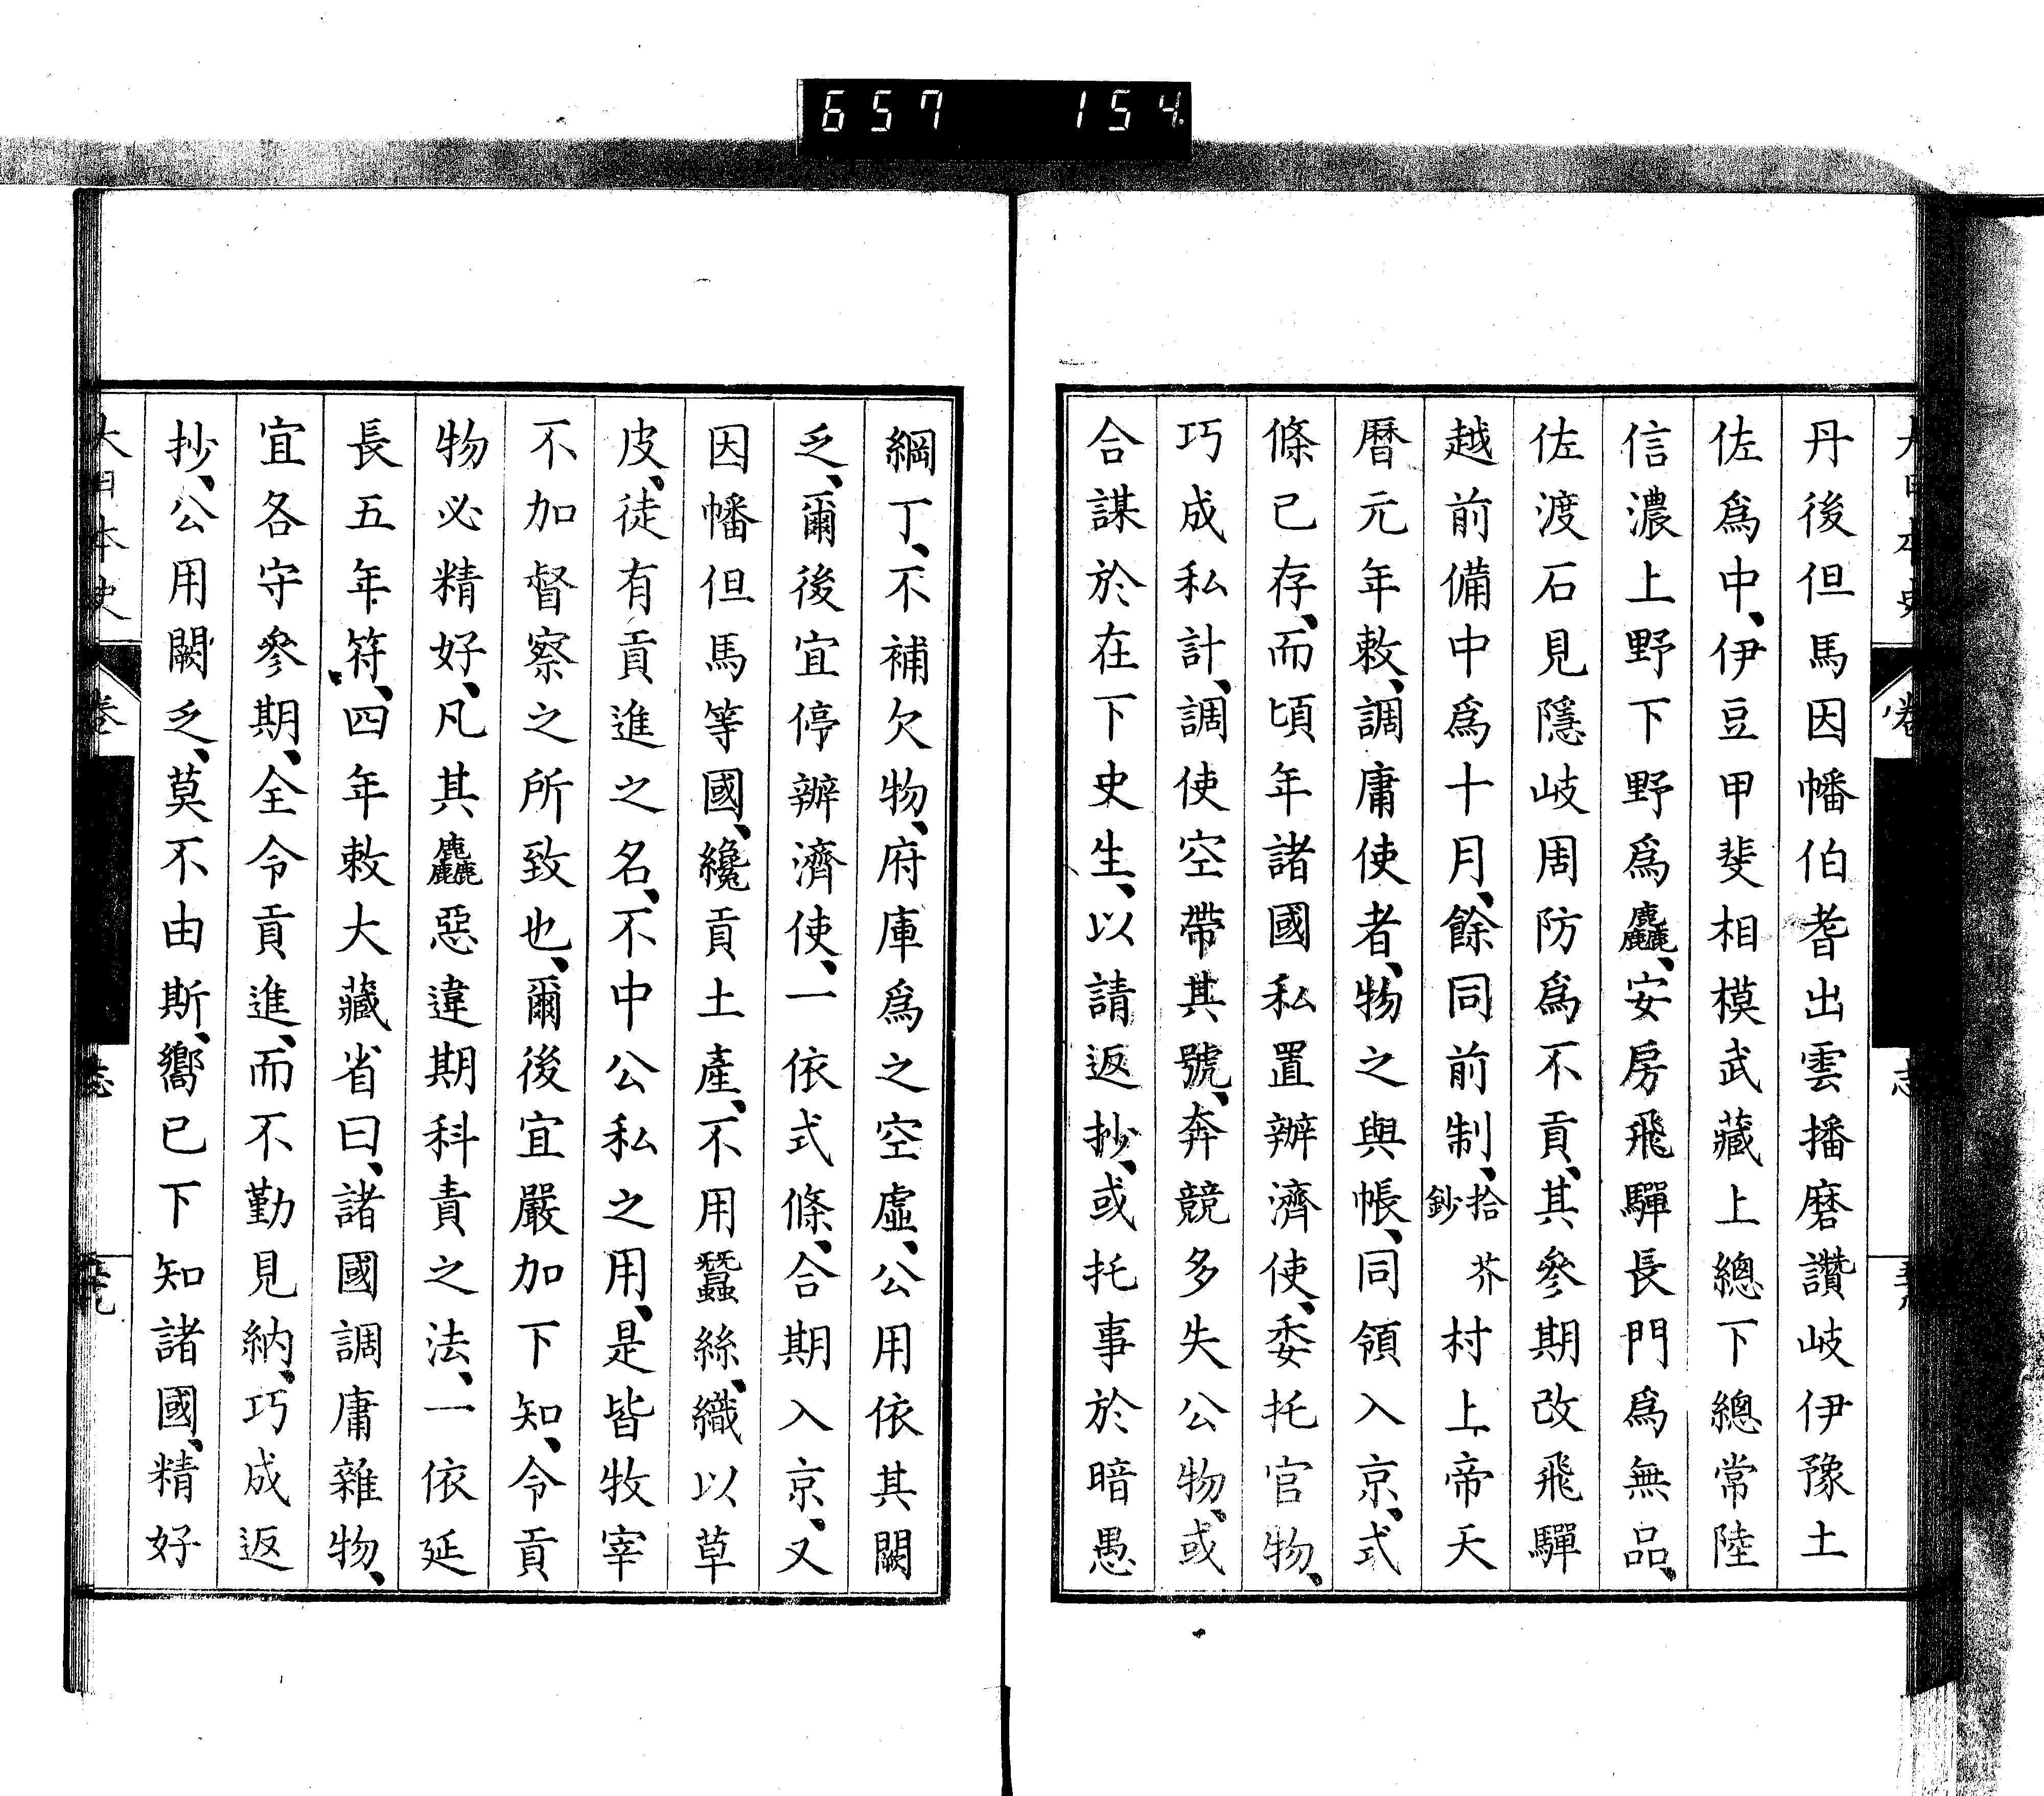 657 154
丹後但馬因幡伯耆出雲播磨讚岐伊豫土
佐爲中、伊豆甲斐相模武藏上總下總常陸
信濃上野下野爲麤、安房飛驒長門爲無品、
佐渡石見隱岐周防爲不貢、其參期改飛驒
越前備中爲十月、餘同前制、拾芥鈔村上帝天
曆元年敕、調庸使者、物之與帳、同領入京、式
條已存、而頃年諸國私置辦濟使、委托官物、
巧成私計、調使空帶其號、奔競多失公物、或
合謀於在下史生、以請返抄、或托事於暗愚
綱丁、不補欠物、府庫爲之空虛、公用依其闕
乏、爾後宜停辦濟使、一依式條、合期入京、又
因幡但馬等國、纔貢土產、不用蠶絲、織以草
皮、徒有貢進之名、不中公私之用、是皆牧宰
不加督察之所致也、爾後宜嚴加下知、令貢
物必精好、凡其麤惡違期科責之法、一依延
長五年符、四年敕大藏省曰、諸國調庸雜物、
宜各守參期、全令貢進、而不勤見納、巧成返
抄、公用闕乏、莫不由斯、嚮已下知諸國、精好
大日本史 卷 志